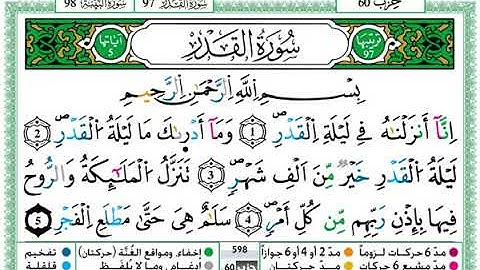 حزب 60 سورة القدر 97 سورة البينة 98
ترتيبها 97 سُورَةُ الْقَدْرِ آياتها 5
بِسْمِ اللَّهِ الرَّحْمَٰنِ الرَّحِيمِ
إِنَّا أَنزَلْنَٰهُ فِى لَيْلَةِ الْقَدْرِ 1 وَمَا أَدْرَىٰكَ مَا لَيْلَةُ الْقَدْرِ 2
لَيْلَةُ الْقَدْرِ خَيْرٌ مِّنْ أَلْفِ شَهْرٍ 3 تَنَزَّلُ الْمَلَٰٓئِكَةُ وَالرُّوحُ
فِيهَا بِإِذْنِ رَبِّهِم مِّن كُلِّ أَمْرٍ 4 سَلَٰمٌ هِىَ حَتَّىٰ مَطْلَعِ الْفَجْرِ 5
مدّ 6 حركات لزوماً مدّ 2 أو 4 أو 6 جوازاً 598 إخفاء، ومواقع الغُنَّة (حركتان) تفخيم
مدّ حركتان 60 إدغام، وما لا يُلفَظ قلقلة